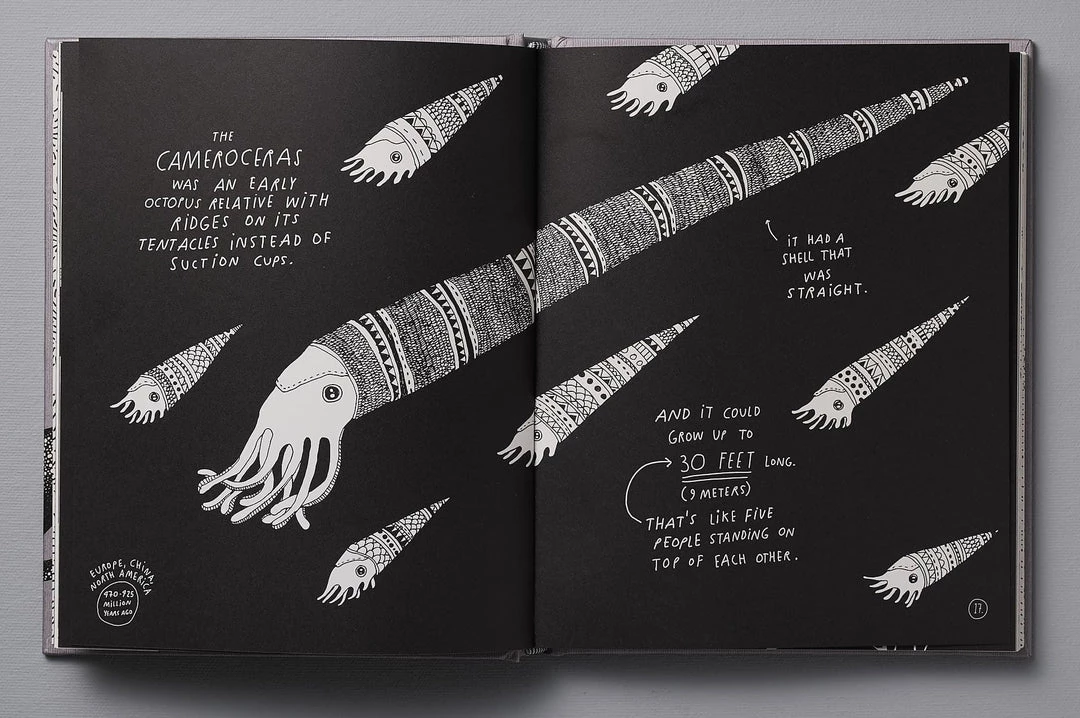 THE
CAMEROCERAS
WAS AN EARLY
OCTOPUS RELATIVE WITH
RIDGES ON ITS
TENTACLES INSTEAD OF
SUCTION CUPS.
EUROPE, CHINA,
NORTH AMERICA
470-425
MILLION
YEARS AGO
IT HAD A
SHELL THAT
WAS
STRAIGHT.
AND IT COULD
GROW UP TO
30 FEET LONG.
(9 METERS)
THAT'S LIKE FIVE
PEOPLE STANDING ON
TOP OF EACH OTHER.
17